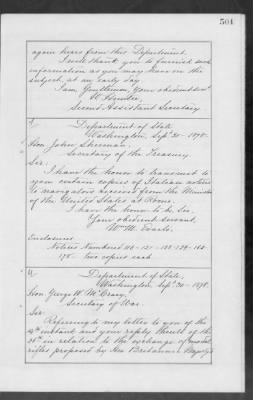 504
again hears from this Department.
I will thank you to furnish such
information as you may have on the
subject, at an early day.
I am, Gentlemen, Your obedient servt
W. Hunter,
Second Assistant Secretary.
Department of State
Washington, Sept. 30 - 1878.
Hon. John Sherman,
Secretary of the Treasury.
Sir:
I have the honor to transmit to
you certain copies of Italian notices
to navigators received from the Minister
of the United States at Rome.
I have the honor to be, Sir,
Your obedient servant,
Wm. M. Evarts.
Enclosures.
Notices Numbered
two copies each
Department of State,
Washington, Sept. 30 - 1878.
Hon. George W. McCrary,
Secretary of War.
Sir:
Referring to my letter to you of the
instant and your reply thereto of the
28th in relation to the exchange of
rifles proposed by Her Britannic Majesty's